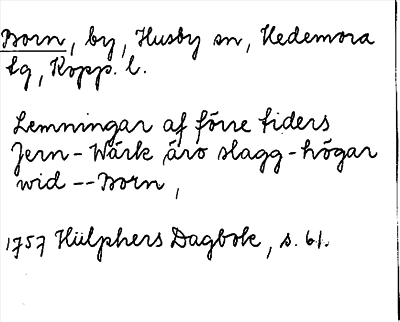 Born, by, Husby sn, Hedemora
tg, Kopp. l.
Lemningar af förre tiders
Jern-Wärk äro slagg-högar
wid -- Born,
1757 Hülphers Dagbok, s. 61.